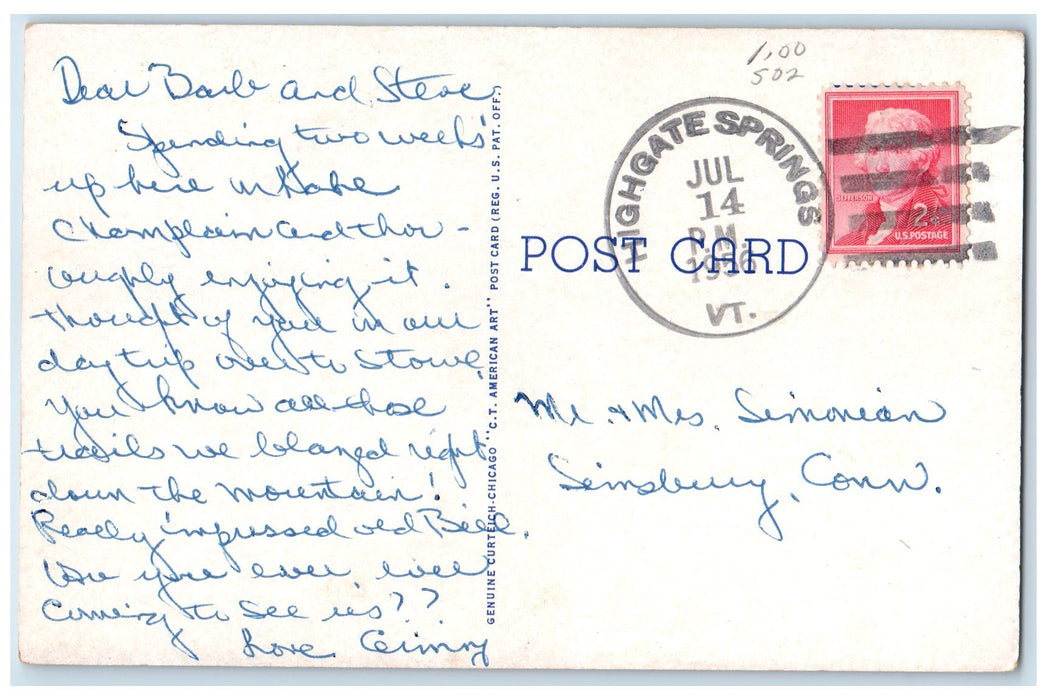 1,00
502
Dear Barb and Steve,
Spending two weeks'
up here in Lake
Champlain and thor-
oughly enjoying it.
thought of you in our
day trip over to Stowe.
You know all those
trails we blazed right
down the mountain!
Really impressed old Bill.
you ever, ever
Coming to see us??
Love Ginny
GENUINE CURTEICH-CHICAGO "C.T. AMERICAN ART" POST CARD (REG. U.S. PAT. OFF.)
HIGHGATE SPRINGS
JUL
14
PM
1956
VT.
POST CARD
JEFFERSON
2¢
U.S. POSTAGE
Mr. & Mrs. Simonian
Simsbury, Conn.